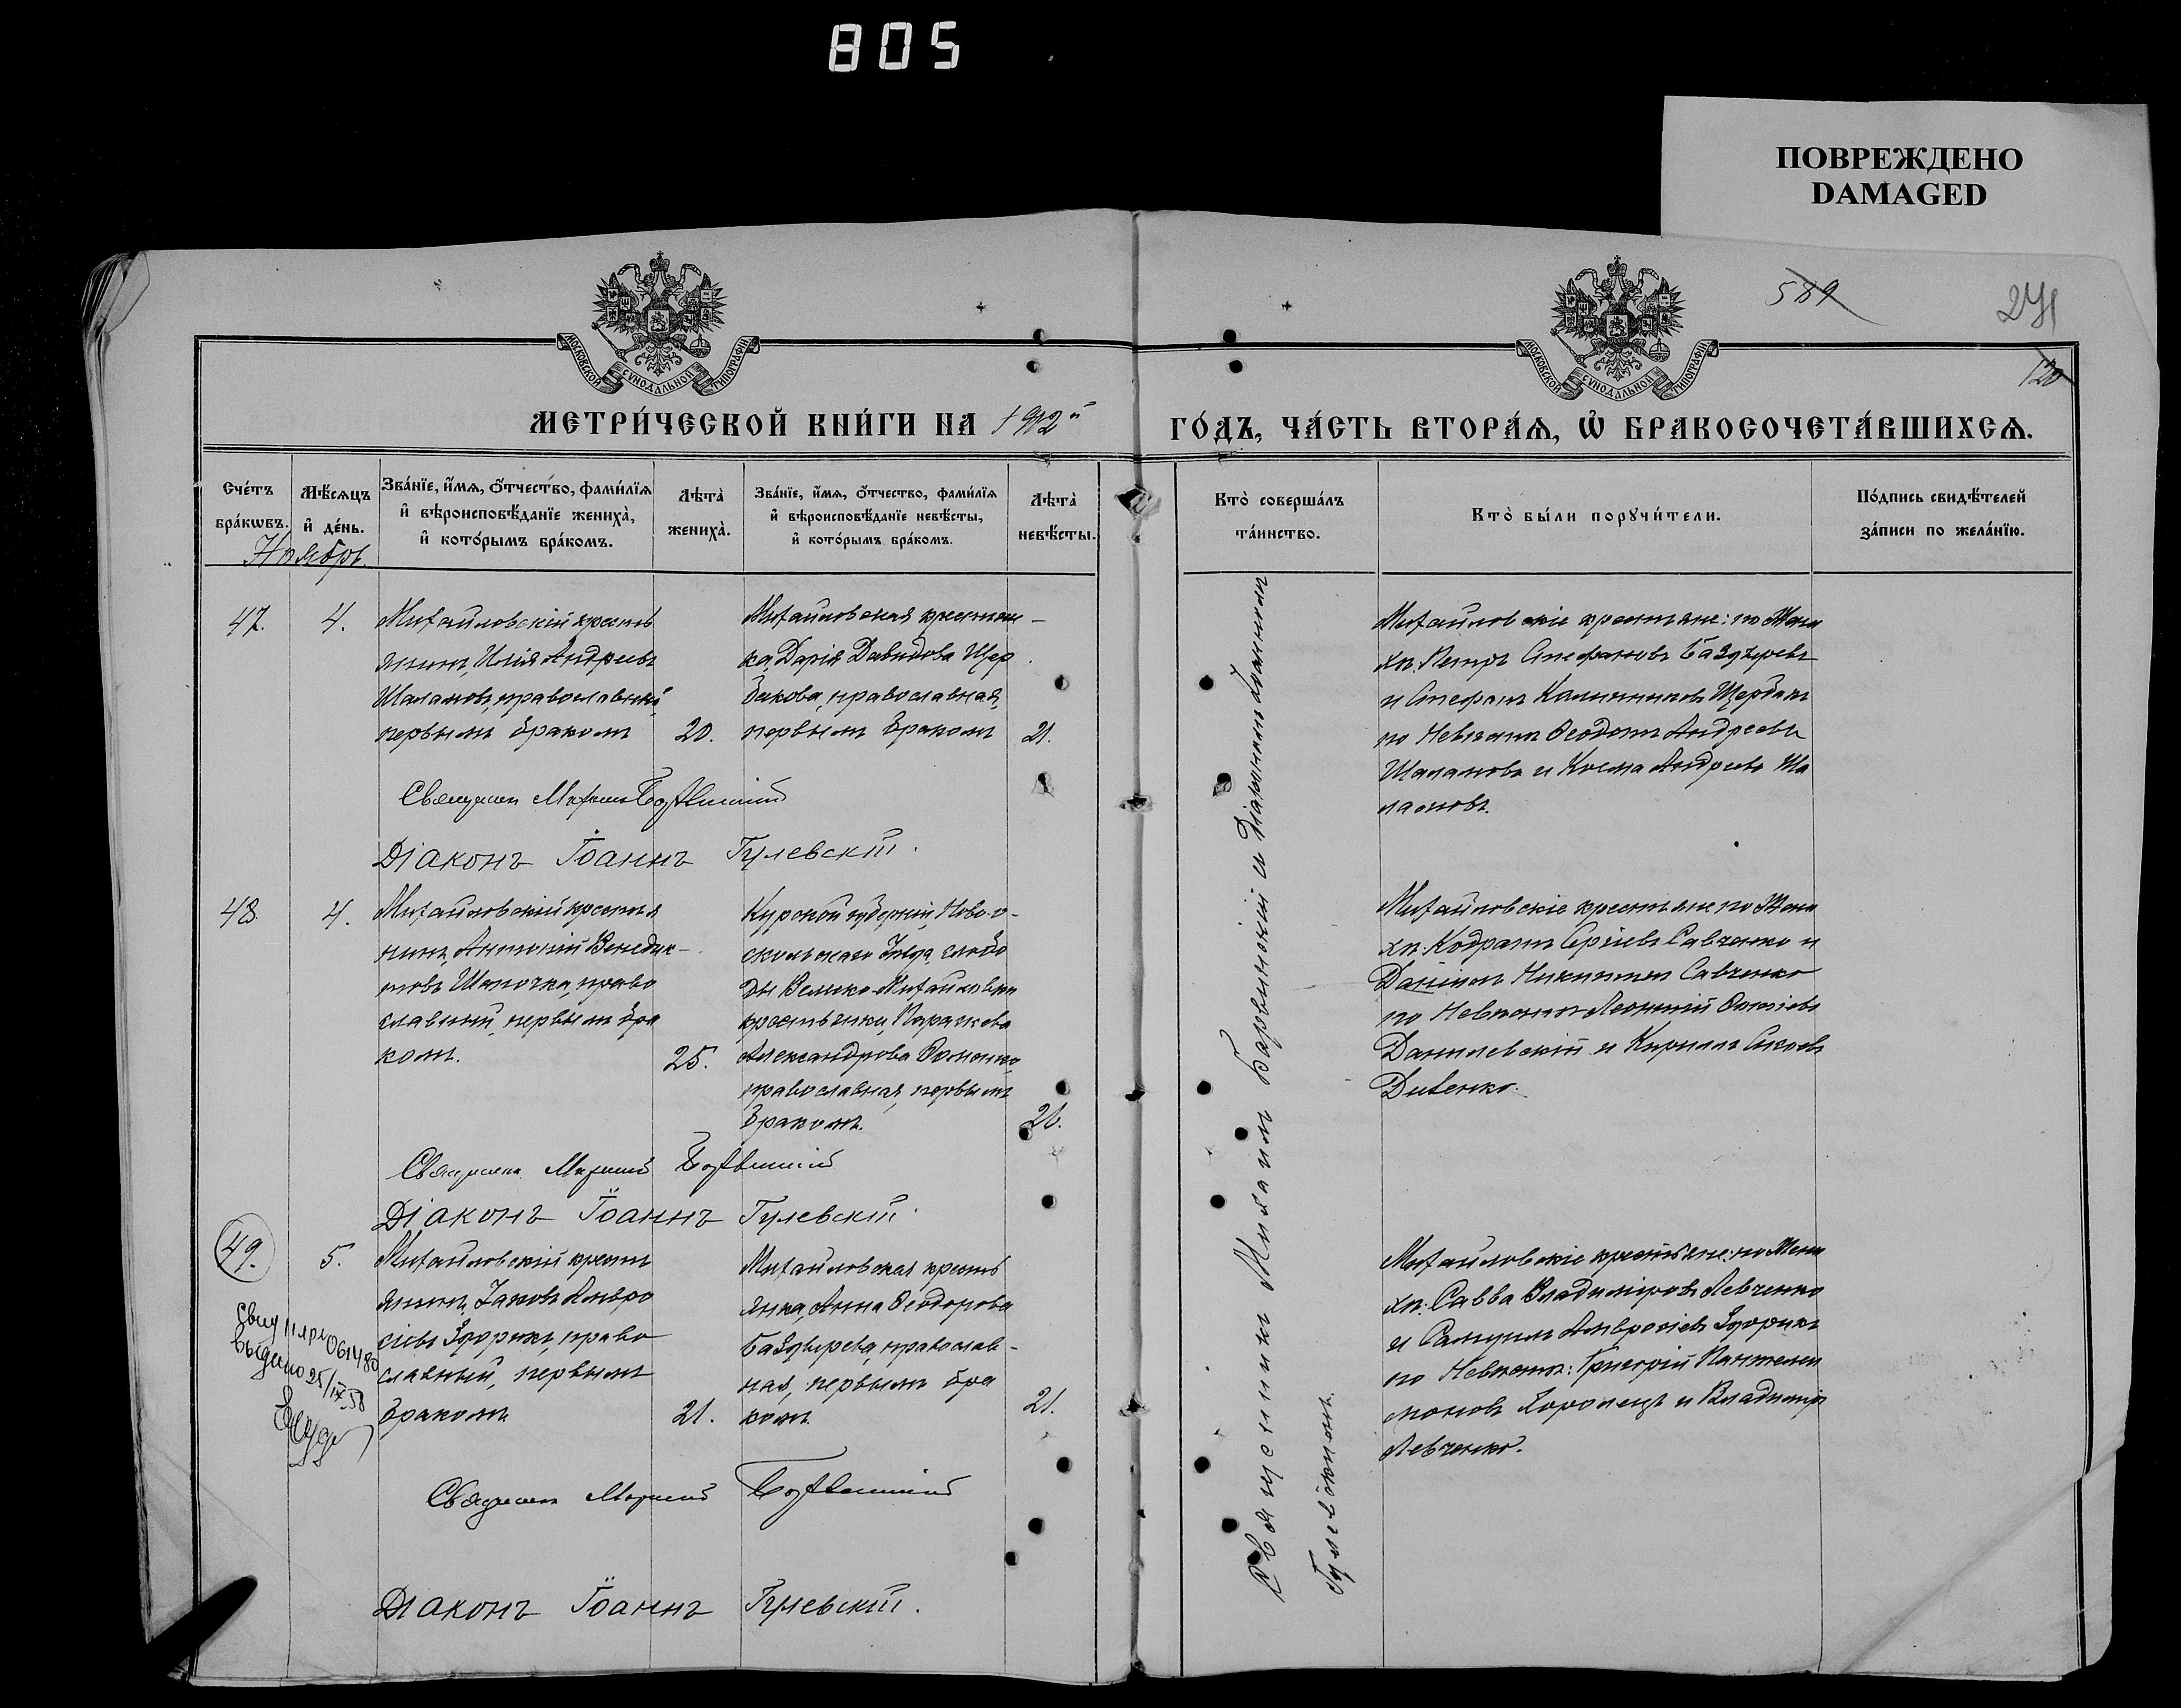 805
ПОВРЕЖДЕНО
DAMAGED
589
271
120
МОСКОВСКОЙ СѴНОДАЛЬНОЙ ТИПОГРАФІИ
МОСКОВСКОЙ СѴНОДАЛЬНОЙ ТИПОГРАФІИ
МЕТРИ́ЧЕСКОЙ КНИ́ГИ НА 1912й
ГО́ДЪ, ЧА́СТЬ ВТОРА́Ѧ, Ѡ҆ БРАКОСОЧЕТА́ВШИХСѦ.
Сче́тъ
бра́кѡвъ.
Мѣ́сяцъ
и҆ де́нь.
Ноябрь.
Зва́нїе, и҆́мѧ, ѻ҆́тчество, фами́лїѧ
и҆ вѣроисповѣ́данїе жениха̀,
и҆ кото́рымъ бра́комъ.
Лѣта̀
жениха̀.
Зва́нїе, и҆́мѧ, ѻ҆́тчество, фами́лїѧ
и҆ вѣроисповѣ́данїе невѣ́сты,
и҆ кото́рымъ бра́комъ.
Лѣта̀
невѣ́сты.
Кто̀ соверша́лъ
та́инство.
Кто̀ бы́ли порꙋчи́тели.
По́дпись свидѣ́телей
за́писи по жела́нїю.
47.
4.
Михайловскій кресть
янинъ, Илія Андреевъ
Шаламовъ, православный,
первымъ бракомъ
20.
Михайловская крестьян-
ка, Дарія Давидова Щер
бакова, православная,
первымъ бракомъ
21.
Михайловскіе крестьяне: по Жени
хѣ: Петръ Стефановъ Баздыревъ
и Стефанъ Калинниковъ Щербакъ
по Невѣстѣ Ѳеодотъ Андреевъ
Шаламовъ и Косма Андреевъ Ша
ламовъ.
Священникъ Михаилъ Барвинскій
Діаконъ Іоаннъ Гулевскій.
48
4.
Михайловскій крестья
нинъ, Антоній Венедик-
товъ Шапочка, право
славный, первымъ бра
комъ.
25.
Курской губерніи, Ново-о-
скольскаго уѣзда, слобо
ды Велико-Михайловки
крестьянка, Параскева
Александрова
православная, первымъ
бракомъ.
21.
Михайловскіе крестьяне по Жени
хѣ: Кодратъ Сергіевъ Савченко и
Даніилъ Никитинъ Савченко
по Невѣстѣ Леонтій
Данилевскій и Кириллъ
Диденко.
Священникъ Михаилъ Барвинскій
Діаконъ Іоаннъ Гулевскій.
49.
5.
Михайловскій кресть
янинъ, Іаковъ Амвро
сіевъ Здорикъ, право
славный, первымъ
бракомъ
21.
Михайловская кресть
янка, Анна Ѳеодорова
Баздырева, православ-
ная, первымъ бра
комъ.
21.
Михайловскіе крестьяне: по Жени
хѣ: Савва Владиміровъ Левченко
и Самуилъ Амвросіевъ Здорикъ
по Невѣстѣ: Григорій Пантелеи
моновъ Хоролецъ и Владиміръ
Левченко.
061480
выдано 25/IX 58
Священникъ Михаилъ Барвинскій
Діаконъ Іоаннъ Гулевскій.
Священникъ Михаилъ Барвинскій и Діаконъ Іоаннъ
Гулевскій.